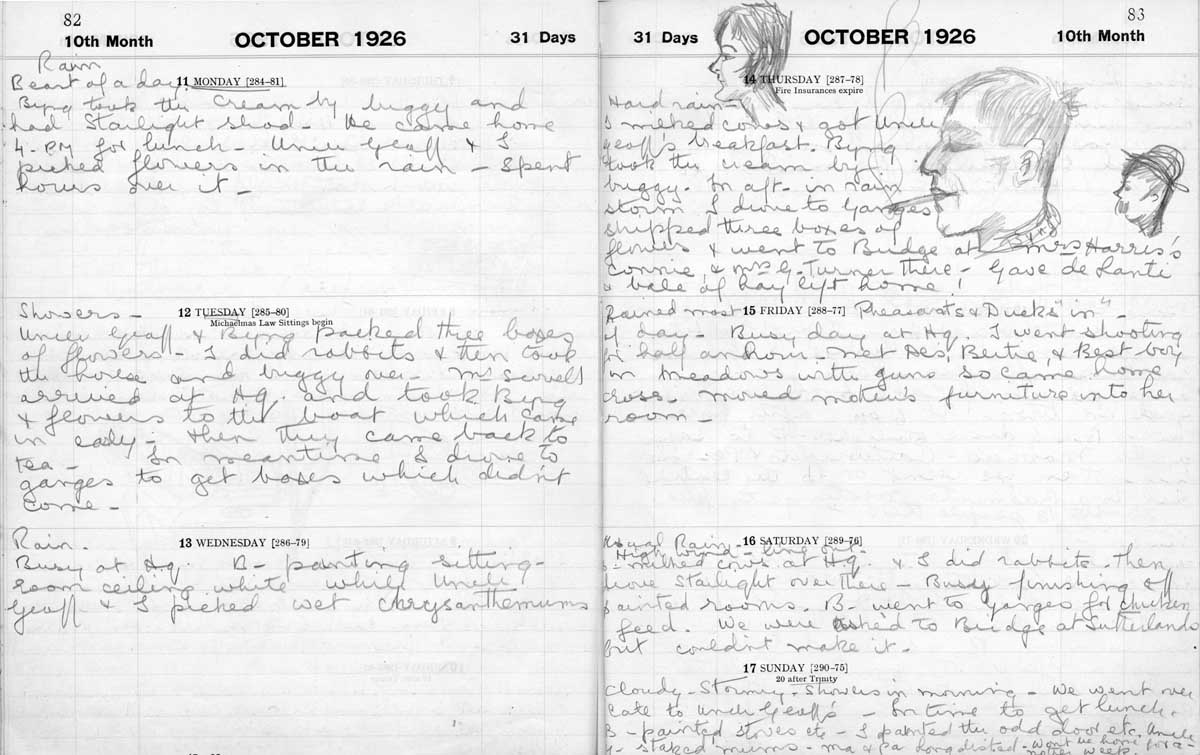 82
10th Month OCTOBER 1926 31 Days
Rain
Beast of a day. 11 MONDAY [284-81]
Byng took the cream by buggy and
had Starlight shod - He came home
4 - PM for lunch - Uncle Geoff & I
picked flowers in the rain - spent
hours over it -
Showers - 12 TUESDAY [285-80]
Michaelmas Law Sittings begin
Uncle Geoff & Byng packed three boxes
of flowers - I did rabbits & then took
the horse and buggy over - Mr
arrived at Hq. and took Byng
& flowers to the boat which came
in early - then they came back to
tea - In meantime I drove to
ganges to get boxes which didn't
come -
Rain. 13 WEDNESDAY [286-79]
Busy at Hq. B - painting sitting-
room ceiling white while Uncle
Geoff & I picked wet chrysanthemums
83
31 Days OCTOBER 1926 10th Month
14 THURSDAY [287-78]
Fire Insurances expire
Hard rain -
I milked cows & got Uncle
Geoff's breakfast. Byng
took the cream by
buggy. In aft - in rain
storm I drove to Ganges
shipped three boxes of
flowers & went to Bridge at Mrs Harris's
Connie, & Mrs G. Turner there - Gave de
& bale of hay lift home!
Rained most 15 FRIDAY [288-77] Pheasants & Ducks "in" -
of day - Busy day at Hq. I went shooting
for half an hour - met Des, Bertie, & Best boy
in meadows with guns so came home
cross - moved mother's furniture into her
room -
Usual Rain - 16 SATURDAY [289-76]
High wind - line out -
B - milked cows at Hq. & I did rabbits. Then
drove Starlight over there - Busy finishing off
painted rooms. B - went to Ganges for chicken
feed. We were asked to Bridge at Sutherlands
but couldn't make it -
17 SUNDAY [290-75]
20 after Trinity
Cloudy - Stormy - Showers in morning - We went over
late to Uncle Geoff's - In time to get lunch -
B - painted stoves etc - I painted the odd door etc. Uncle
G - staked mums - ma & pa long dist